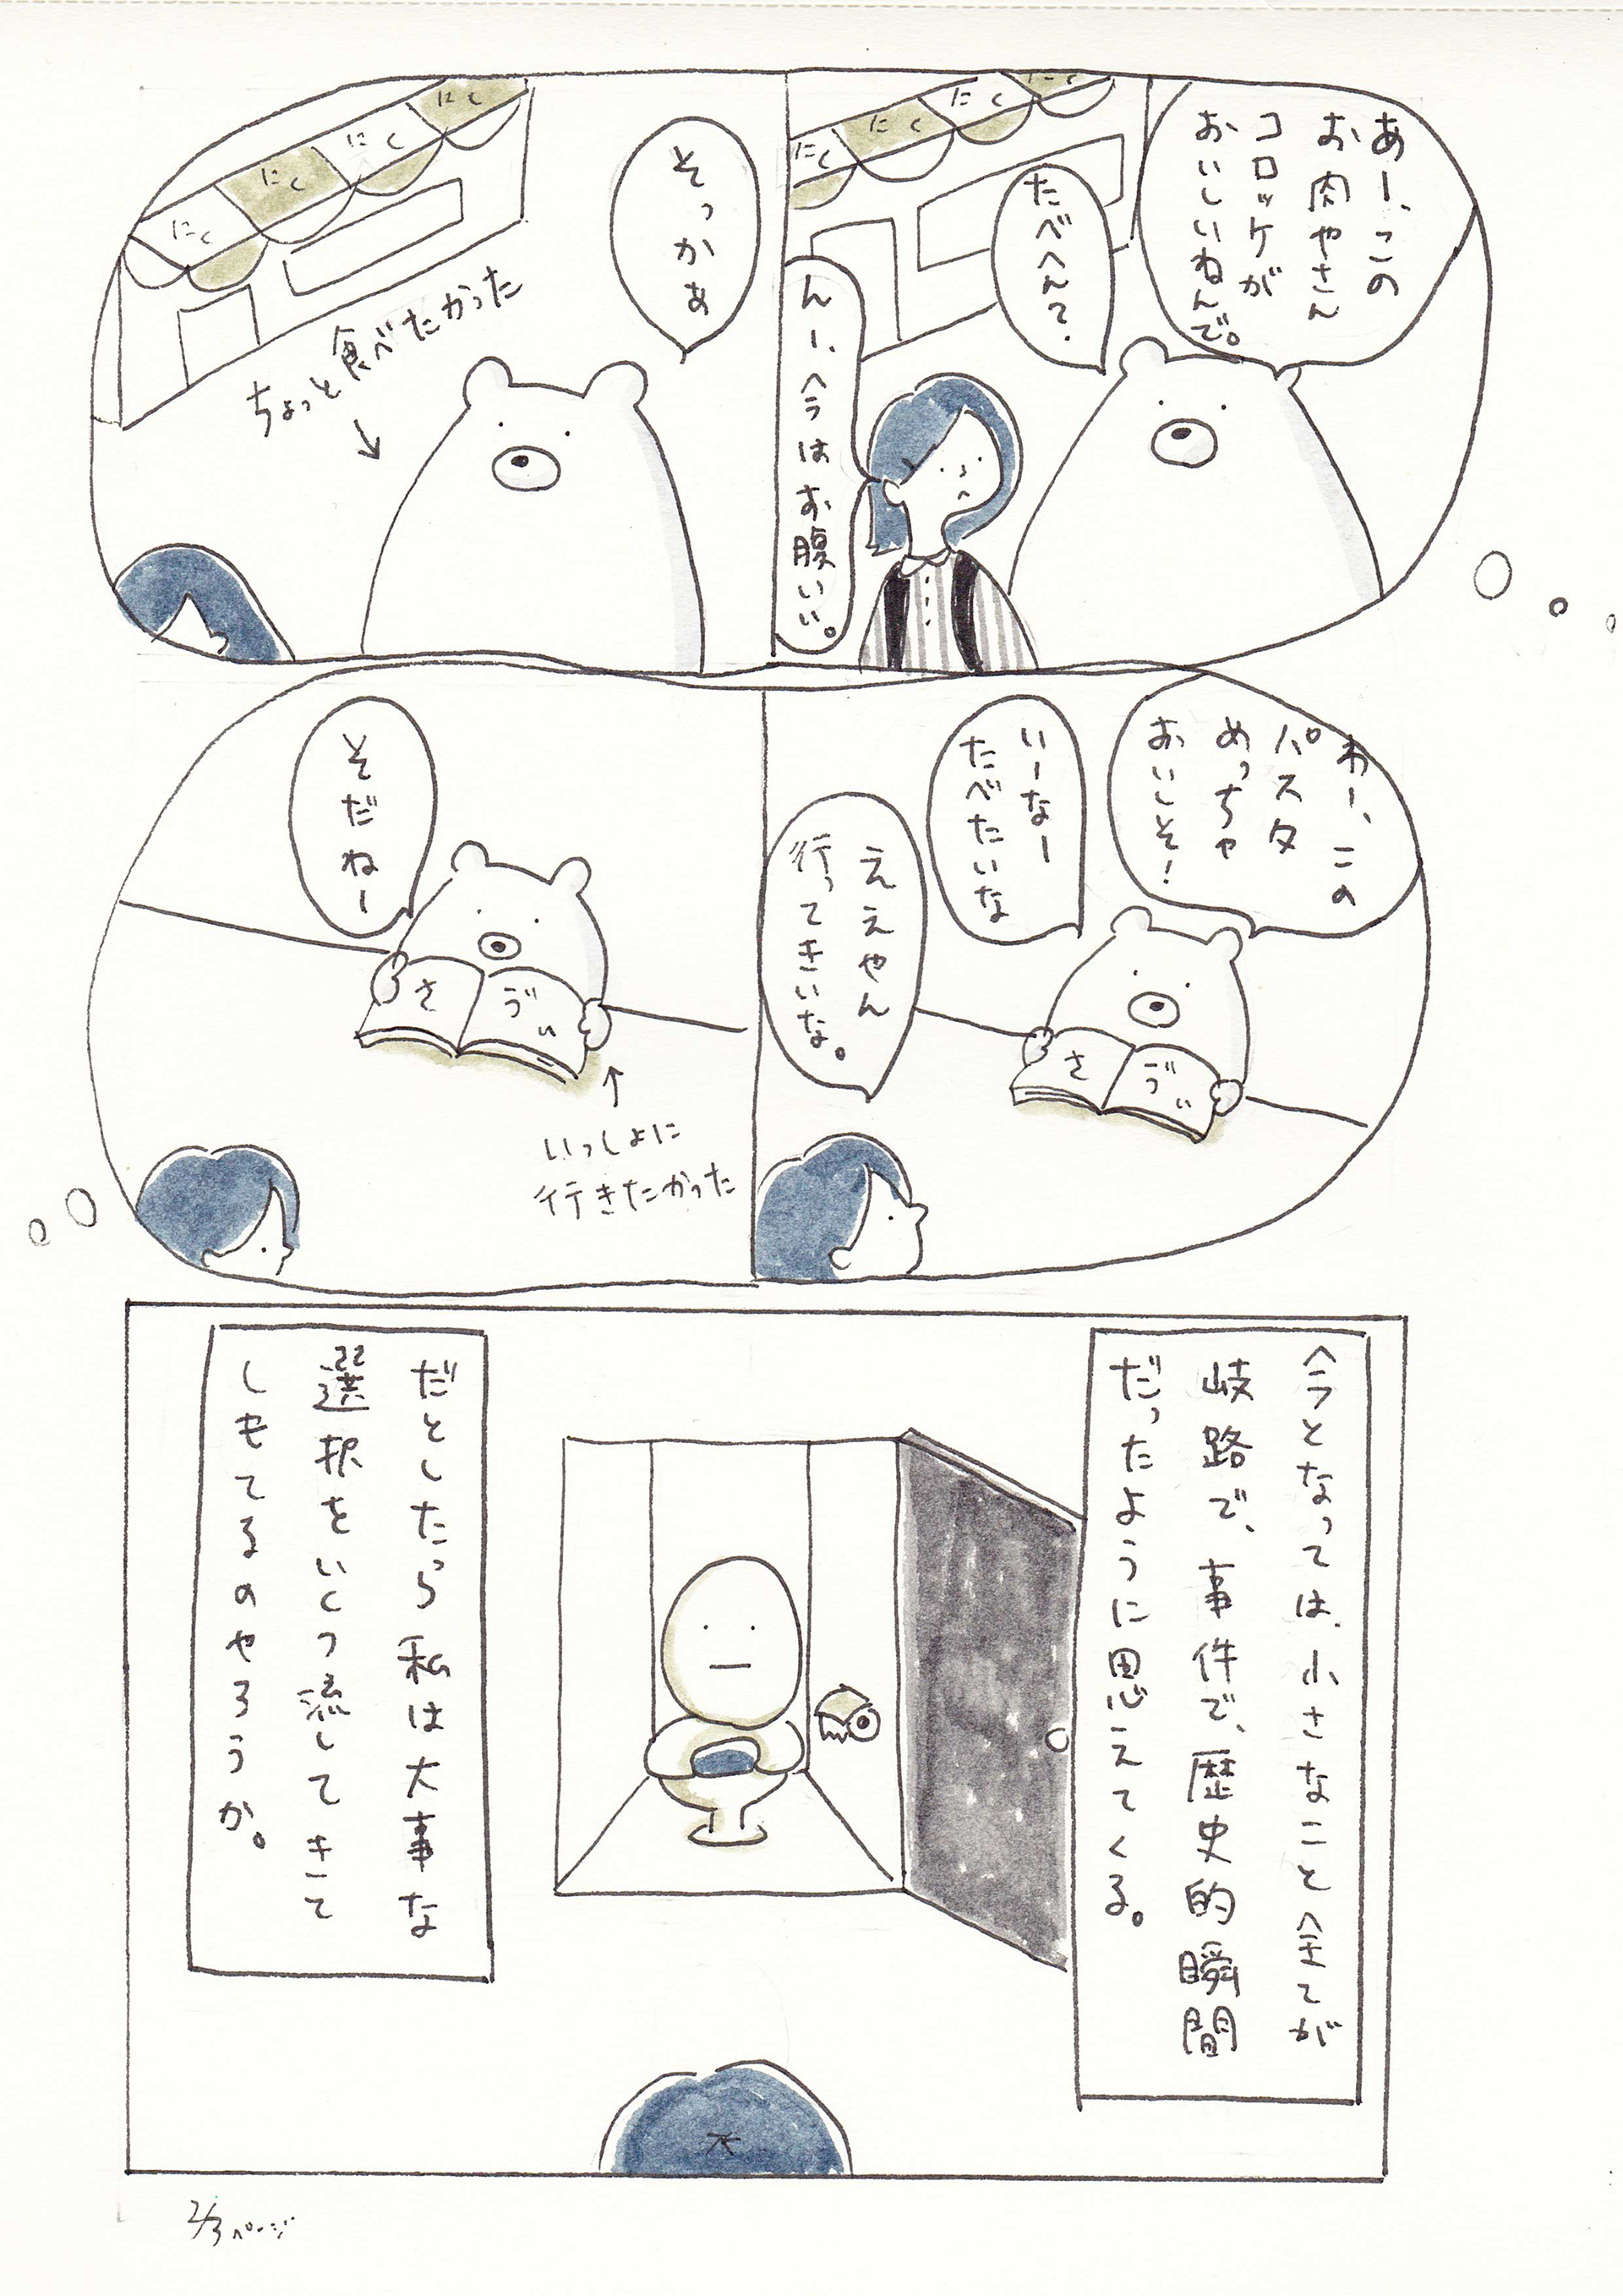 あー、この
お肉やさん
コロッケが
おいしいねんで。
たべへん?
んー、今はお腹いい。
にく
にく
にく
にく
そっかぁ
にく
にく
にく
にく
ちょっと食べたかった
わー、この
パスタ
めっちゃ
おいしそ!
いーなー
たべたいな
ええやん
行ってきいな。
さ
ゔぃ
そだねー
さ
ゔぃ
いっしょに
行きたかった
今となっては、小さなこと全てが
岐路で、事件で、歴史的瞬間
だったように思えてくる。
だとしたら私は大事な
選択をいくつ流してきて
しもてるのやろうか。
2/3ページ